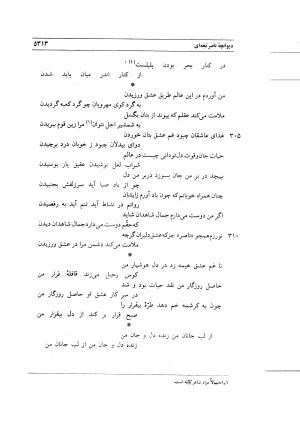 دیوانچهٔ ناصر بجه‌ای
۵۳۱۳
در کنار بحر بودن بلبلیست(۱)
از کنار اندر میان باید شدن
*
من آوردم در این عالم طریق عشق ورزیدن
به گرد کوی مهرویان چو گرد کعبه گردیدن
ملامت می‌کند عقلم که پیوند از بتان بگسل
به شمشیر اجل نتوان(۱) مرا زین قوم ببریدن
۳۰۵ غذای عاشقان چبود غم عشق بتان خوردن
دوای بیدلان چبود ز خوبان درد برچیدن
حیات جان و قوت دل تو دانی چیست در عالم
شراب لعل نوشیدن عقیق یار بوسیدن
بپیچد در بر من جان بسوزد در بر من دل
چو از باد صبا آید سر زلفش بجنبیدن
چنان همراه خوبانم که چون یاد آورم زایشان
روانم در نشاط آید تنم آید به رقصیدن
اگر من دوست می‌دارم جمال شاهدان شاید
که حقّم دوست می‌دارد جمال شاهدان دیدن
۳۱۰ نورزم همچو «ناصر» جز که عشق دلبران گرچه
ملامت می‌کند دشمن مرا در عشق ورزیدن
*
تا غم عشق خیمه زد در دل هوشیار من
کوس رحیل می‌زند قافلهٔ قرار من
حاصل روزگار من نقد حیات بود و شد
در سر کار عشق او حاصل روزگار من
چون به کرشمه خم دهد طرّهٔ بیقرار را
صبح قرار بر کند از دل بیقرار من
*
از لب جان من زنده دل و جان من
زنده دل و جان من از لب جانان من
۱ـ احتمالاً مراد شاعر است.